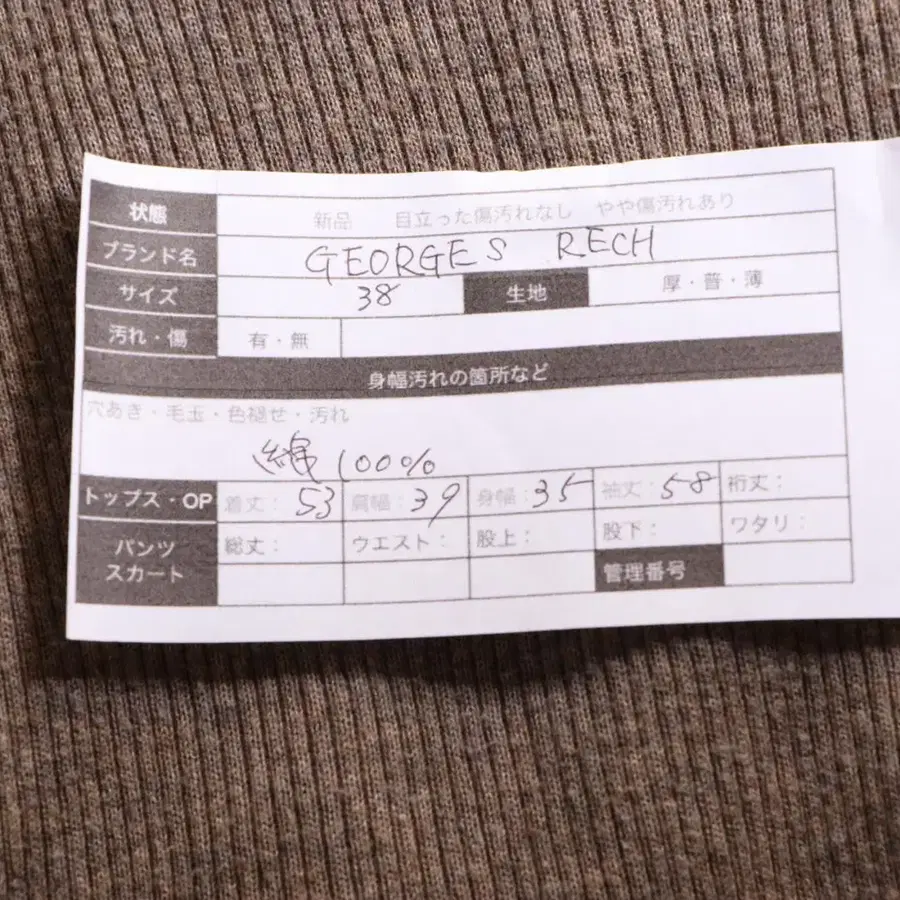 状態 新品 目立った傷汚れなし やや傷汚れあり
ブランド名 GEORGES RECH
サイズ 38 生地 厚・普・薄
汚れ・傷 有・無
身幅汚れの箇所など
穴あき・毛玉・色褪せ・汚れ
綿 100%
トップス・OP 着丈: 53 肩幅: 39 身幅: 35 袖丈: 58 裄丈:
パンツ 総丈: ウエスト: 股上: 股下: ワタリ:
スカート 管理番号